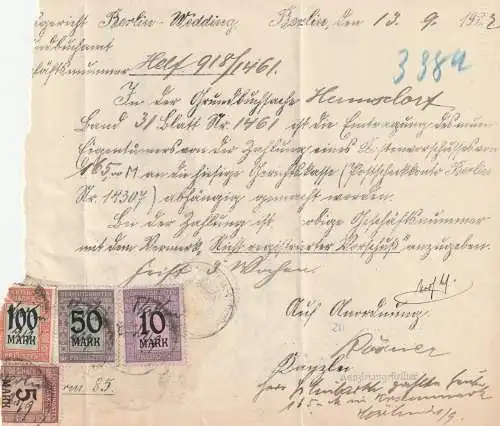 gericht Berlin-Wedding Berlin, den 13. 9. 1922
undbuchamt
häftsnummer Helf 918/1461.
3384
In der Grundbuchsache Hermsdorf
Band 31 Blatt Nr. 1461 ist die Eintragung des neuen
Eigentümers von der Zahlung eines Kostenvorschusses von
165 M an die hiesige Gerichtskasse (Postscheckkonto Berlin
Nr. 14307) abhängig gemacht worden.
Bei der Zahlung ist obige Geschäftsnummer
mit dem Vermerk „Nicht registrierter Vorschuß" anzugeben.
Frist 3 Wochen.
Auf Anordnung.
Kanzlei
100
MARK
50
MARK
10
MARK
5
MARK
85